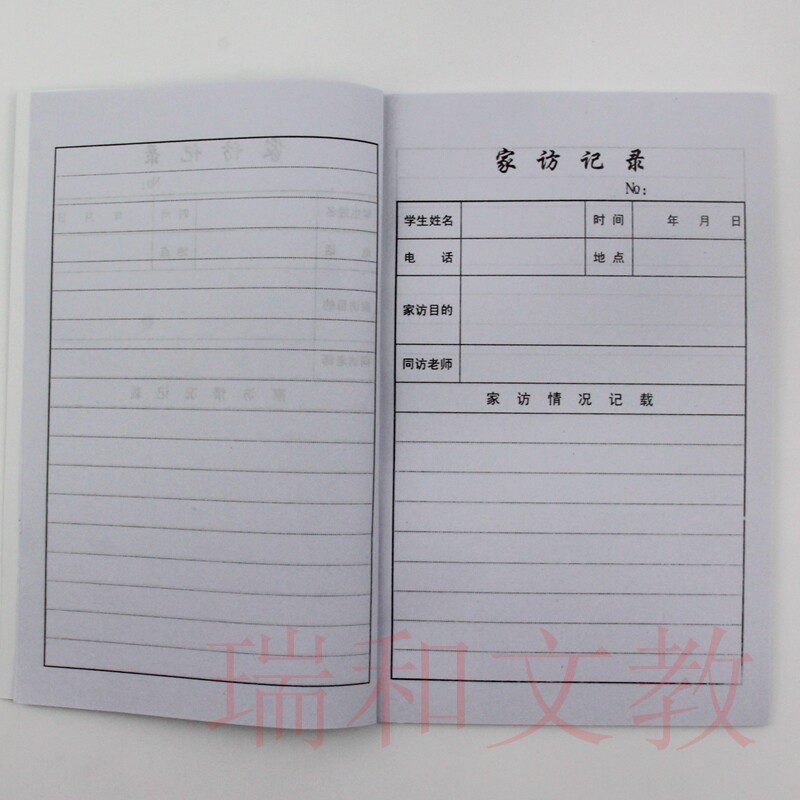 家访记录
No:
学生姓名 时间 年 月 日
电话 地点
家访目的
同访老师
家访情况记载
瑞和文教